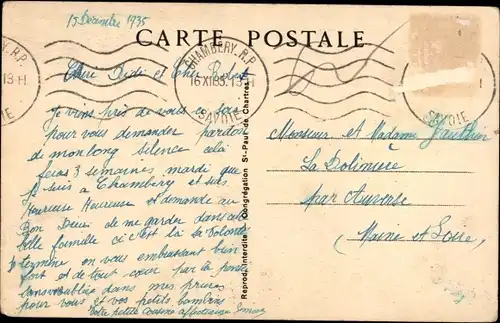 15 Décembre 1935
CARTE POSTALE
CHAMBERY. R.P.
16 XII 35. 13-H
SAVOIE
R.P.
13-H
SAVOIE
Chère Didi et Cher Robert
Je viens près de vous ce soir
pour vous demander pardon
de mon long silence celà
feras 3 semaines mardi que
je suis a Chambery et suis
Heureuse Heureuse et demande au
Bon Dieu de me garder dans cette
belle famille si c'est là sa Volonté
je termine en vous embrassant bien
fort et de tout cœur par la pensée
dans mes prières
pour vous et vos petits bambins
Votre petite cousine affectueuse
Reprod. Interdite Congrégation St-Paul de Chartres
Monsieur et Madame Gauthier
La
par Auverse
(Maine et Loire)